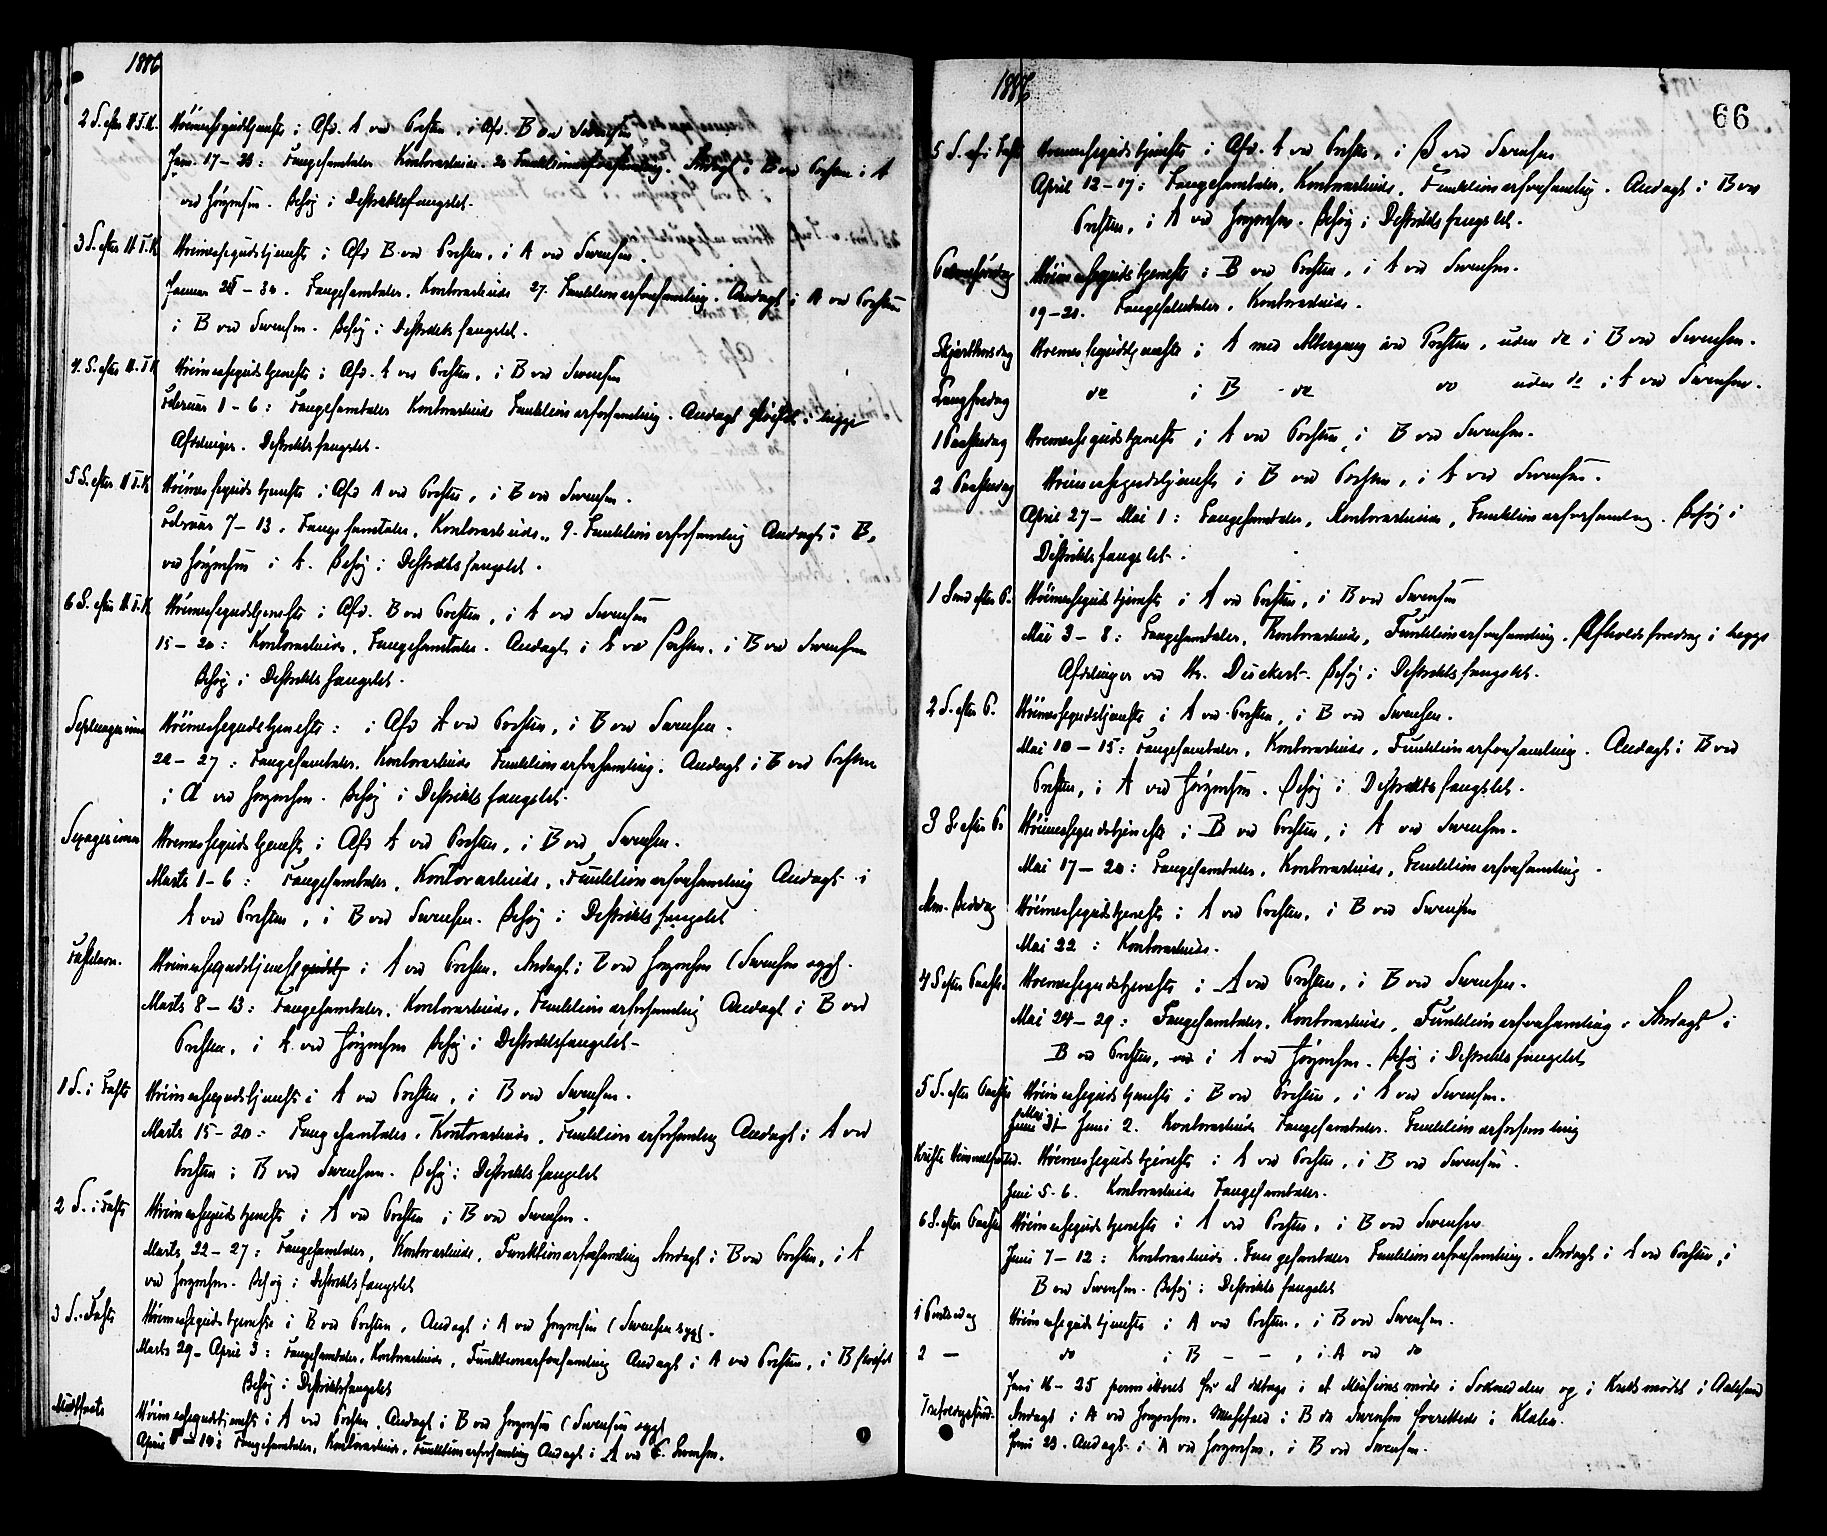 1886
2 S. efter H.3.K. Höimessegudstjeneste i Afd. A ved Presten, i Afd. B ved Svensen
Jan. 17-23: Fangesamtaler Kontorarbeide. 20 Funktionærforsamling. Andagt i B ved Presten i A
ved Jörgensen. Besög i Distriktsfængslet.
3 S. efter H.3.K. Höimessegudstjeneste i Afd B ved Presten, i A ved Svensen.
Januar 25-30. Fangesamtaler. Kontorarbeide 27. Funktionærforsamling. Andagt i A ved Presten
i B ved Svensen. Besög i Distriktsfængslet.
4. S. efter H.3.K Höimessegudstjeneste i Afd. A ved Presten, i B ved Svensen
Februar 1-6: Fangesamtaler Kontorarbeide Funktionærforsamling. Andagt i begge
Afdelinger. Distriktsfængslet.
5 S. efter H.3.K Höimessegudstjeneste i Afd A ved Presten, i B ved Svensen.
Februar 7-13. Fangesamtaler, Kontorarbeide, 9. Funktionærforsamling Andagt i B,
ved Jörgensen i A. Besög i Distriktsfængslet.
6 S. efter H.3.K. Höimessegudstjeneste i Afd. B ved Presten, i A ved Svensen
15-20: Kontorarbeide, Fangesamtaler. Andagt i A ved Presten, i B ved Svensen
Besög i Distriktsfængslet.
Septuagesima Höimessegudstjeneste: i Afd A ved Presten, i B ved Svensen.
22-27: Fangesamtaler. Kontorarbeide Funktionærforsamling. Andagt i B ved Presten
i A ved Jörgensen. Besög i Distriktsfængslet.
Sexagesima Höimessegudstjeneste i Afd A ved Presten, i B ved Svensen.
Marts 1-6: Fangesamtaler, Kontorarbeide, Funktionærforsamling Andagt i
A ved Presten, i B ved Svensen. Besög i Distriktsfængslet
Fastelavn. Höimessegudstjeneste i A ved Presten. Andagt i B ved Jörgensen (Svensen syg).
Marts 8-13: Fangesamtaler, Kontorarbeide, Funktionærforsamling Andagt i B ved
Presten, i A ved Jörgensen Besög i Distriktsfængslet-
1 S. i Faste Höimessegudstjeneste i A ved Presten, i B ved Svensen.
Marts 15-20: Fangesamtaler, Kontorarbeide, Funktionærforsamling Andagt i A ved
Presten i B ved Svensen. Besög i Distriktsfængslet
2 S. i Faste Höimessegudstjeneste i A ved Presten i B ved Svensen.
Marts 22-27: Fangesamtaler, Kontorarbeide, Funktionærforsamling Andagt i B ved Presten, i A
ved Jörgensen. Besög i Distriktsfængslet
3 S. i Faste Höimessegudstjeneste i B ved Presten, Andagt i A ved Jörgensen (Svensen syg).
Marts 29-April 3: Fangesamtaler, Kontorarbeide, Funktionærforsamling Andagt i A ved Presten, i B
Besög i Distriktsfængslet
Midfaste Höimessegudstjeneste i A ved Presten. Andagt i B ved Jörgensen (Svensen syg)
April 5-10: Fangesamtaler, Kontorarbeide, Funktionærforsamling Andagt i A ved Svensen.
1886
66
5 S. i Faste Höimessegudstjeneste i Afd. A ved Presten, i B ved Svensen
April 12-17: Fangesamtaler, Kontorarbeide, Funktionærforsamling. Andagt i B ved
Presten, i A ved Jörgensen. Besög i Distriktsfængslet.
Palmesöndag Höimessegudstjeneste i B ved Presten, i A ved Svensen.
19-21. Fangesamtaler, Kontorarbeide.
Skjærthorsdag Höimessegudstjeneste i A med Altergang ved Presten, uden do i B ved Svensen.
Langfredag do i B - do do uden do i A ved Svensen.
1 Paaskedag Höimessegudstjeneste i A ved Presten, i B ved Svensen.
2 Paaskedag Höimessegudstjeneste i B ved Presten, i A ved Svensen.
April 27-Mai 1: Fangesamtaler, Kontorarbeide, Funktionærforsamling. Besög i
Distriktsfængslet.
1 Sønd efter P. Höimessegudstjeneste i A ved Presten, i B ved Svensen
Mai 3-8: Fangesamtaler, Kontorarbeide, Funktionærforsamling. Afholdsforedrag i begge
Afdelinger ved Hr. Besög i Distriktsfængslet.
2 S. efter P. Höimessegudstjeneste i A ved Presten, i B ved Svensen.
Mai 10-15: Fangesamtaler, Kontorarbeide, Funktionærforsamling. Andagt i B ved
Presten, i A ved Jörgensen. Besög i Distriktsfængslet.
3 S. efter P. Höimessegudstjeneste i B ved Presten, i A ved Svensen.
Mai 17-20: Fangesamtaler, Kontorarbeide, Funktionærforsamling.
Alm. Bededag Höimessegudstjeneste i A ved Presten, i B ved Svensen
Mai 22: Kontorarbeide.
4 S efter Paaske. Höimessegudstjeneste i A ved Presten, i B ved Svensen.
Mai 24-29: Fangesamtaler, Kontorarbeide, Funktionærforsamling. Andagt i
B ved Presten, i A ved Jörgensen. Besög i Distriktsfængslet
5 S. efter Paaske Höimessegudstjeneste i B ved Presten, i A ved Svensen.
Mai 31-Juni 2. Kontorarbeide Fangesamtaler. Funktionærforsamling
Kristi Himmelfartsd. Höimessegudstjeneste i A ved Presten, i B ved Svensen.
Juni 5-6. Kontorarbeide Fangesamtaler.
6 S. efter Paaske Höimessegudstjeneste i A ved Presten, i B ved Svensen.
Juni 7-12: Kontorarbeide. Fangesamtaler Funktionærforsamling. Andagt i A ved Presten, i
B ved Svensen. Besög i Distriktsfængslet
1 Pintsedag Höimessegudstjeneste i A ved Presten, i B ved Svensen.
2 - do i B - -, i A ved do
Juni 16-25 permitteret for at deltage i et Missionsmöde i og i Kredsmödet i Aalesund
Trefoldighedssönd. Andagt i A ved Jörgensen. i B da Svensen forrettede i
Juni 23. Andagt i A ved Jörgensen, i B ved Svensen.